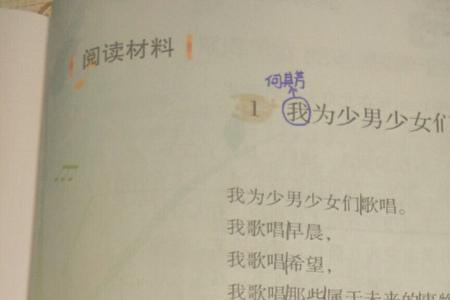 阅读材料
何其芳
1 我为少男少女们
我为少男少女们歌唱。
我歌唱早晨，
我歌唱希望，
我歌唱那些属于未来的